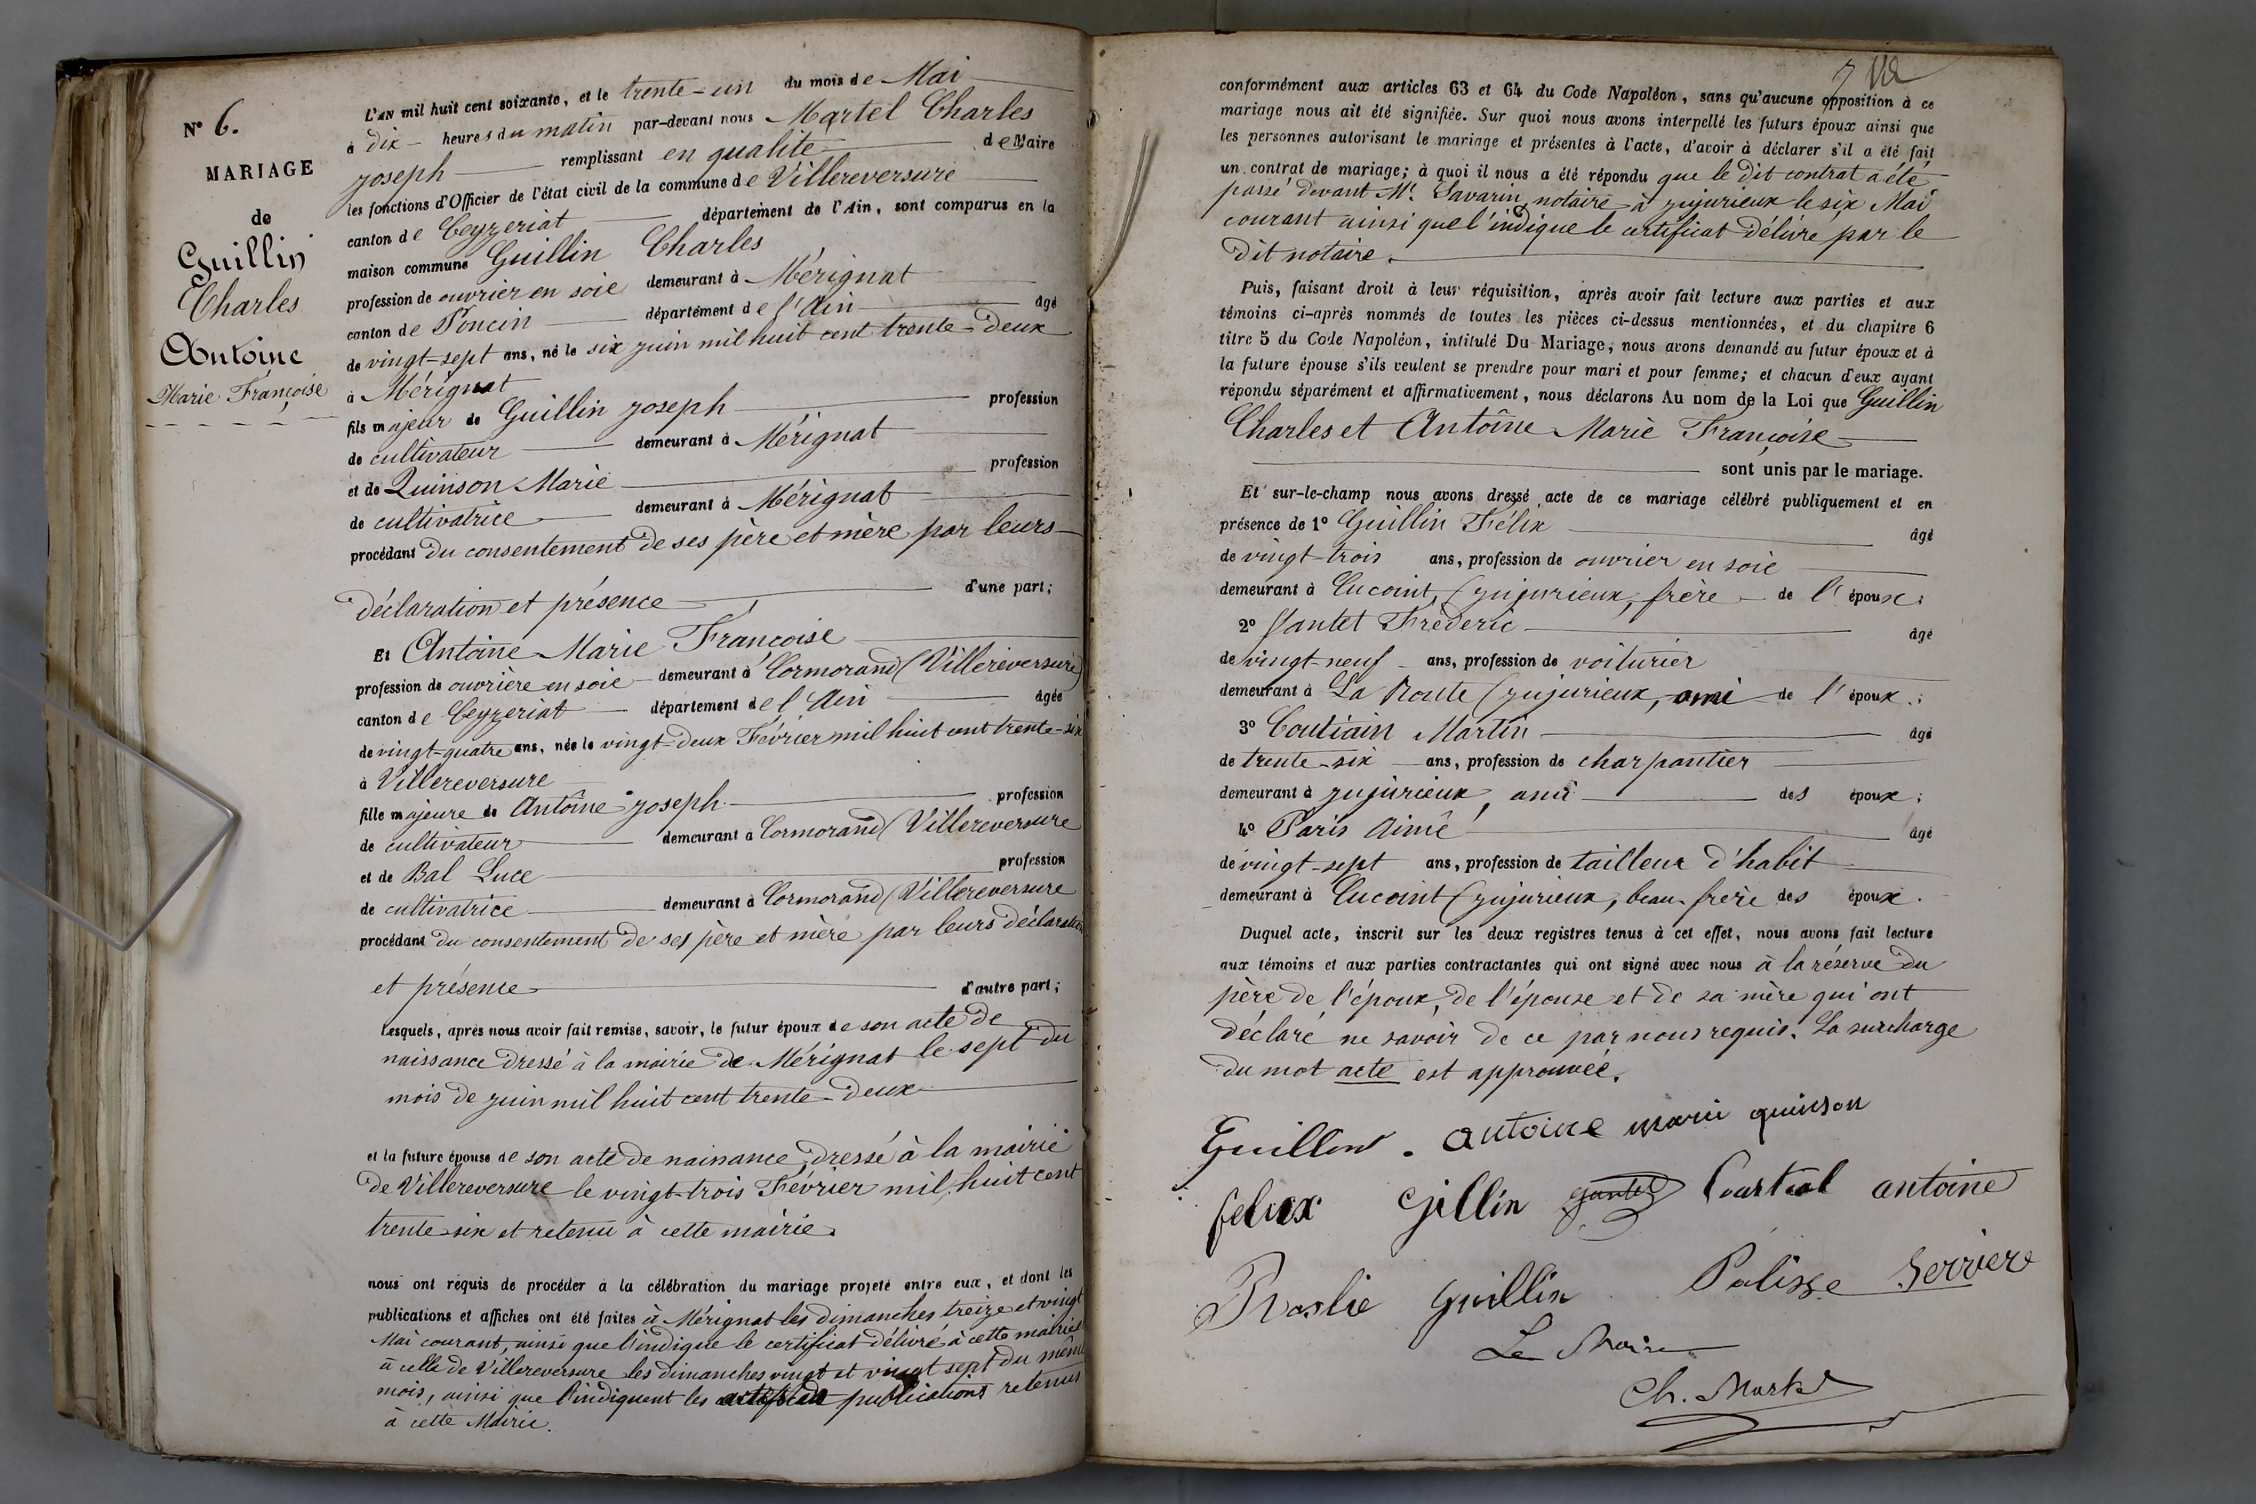 N° 6.
MARIAGE
de
Guillin
Charles
Antoine
Marie Françoise
L'AN mil huit cent soixante, et le trente-un du mois de Mai
à dix heures du matin par-devant nous Martel Charles
joseph remplissant en qualité de Maire
les fonctions d'Officier de l'état civil de la commune de Villereversure
canton de Ceyzeriat département de l'Ain, sont comparus en la
maison commune Guillin Charles
profession de ouvrier en soie demeurant à Mérignat
canton de Poncin département de l'Ain âgé
de vingt-sept ans, né le six juin mil huit cent trente-deux
à Mérignat
fils majeur de Guillin joseph profession
de cultivateur demeurant à Mérignat
et de Quinson Marie profession
de cultivatrice demeurant à Mérignat
procédant du consentement de ses père et mère par leurs
déclaration et présence d'une part;
Et Antoine Marie Françoise
profession de ouvrière en soie demeurant à Cormorand (Villereversure)
canton de Ceyzeriat département de l'Ain âgée
de vingt-quatre ans, née le vingt-deux Février mil huit cent trente-six
à Villereversure
fille majeure de Antoine joseph profession
de cultivateur demeurant à Cormorand (Villereversure
et de Bal Luce profession
de cultivatrice demeurant à Cormorand (Villereversure
procédant du consentement de ses père et mère par leurs déclaration
et présence d'autre part;
Lesquels, après nous avoir fait remise, savoir, le futur époux de son acte de
naissance dressé à la mairie de Mérignat le sept du
mois de juin mil huit cent trente-deux
et la future épouse de son acte de naissance, dressé à la mairie
de Villereversure le vingt-trois Février mil huit cent
trente-six et retenu à cette mairie.
nous ont requis de procéder à la célébration du mariage projeté entre eux, et dont les
publications et affiches ont été faites à Mérignat les dimanches treize et vingt
Mai courant, ainsi que l'indique le certificat délivré à cette mairie
à celle de Villereversure les dimanches vingt et vingt sept du même
mois, ainsi que l'indiquent les actes de publications retenus
à cette Mairie.
conformément aux articles 63 et 64 du Code Napoléon, sans qu'aucune opposition à ce
mariage nous ait été signifiée. Sur quoi nous avons interpellé les futurs époux ainsi que
les personnes autorisant le mariage et présentes à l'acte, d'avoir à déclarer s'il a été fait
un contrat de mariage; à quoi il nous a été répondu que le dit contrat a été
passé devant Mr. Savarin notaire à jujurieux le six Mai
courant ainsi que l'indique le certificat délivré par le
dit notaire.
Puis, faisant droit à leur réquisition, après avoir fait lecture aux parties et aux
témoins ci-après nommés de toutes les pièces ci-dessus mentionnées, et du chapitre 6
titre 5 du Code Napoléon, intitulé Du Mariage, nous avons demandé au futur époux et à
la future épouse s'ils veulent se prendre pour mari et pour femme; et chacun d'eux ayant
répondu séparément et affirmativement, nous déclarons Au nom de la Loi que Guillin
Charles et Antoine Marie Françoise
sont unis par le mariage.
Et sur-le-champ nous avons dressé acte de ce mariage célébré publiquement et en
présence de 1° Guillin Félix âgé
de vingt-trois ans, profession de ouvrier en soie
demeurant à Cucoint, (jujurieux, frère de l'époux;
2° Gantet Fréderic âgé
de vingt-neuf ans, profession de voiturier
demeurant à La Route (jujurieux, ami de l'époux.;
3° Coutiain Martin âgé
de trente-six ans, profession de charpantier
demeurant à jujurieux, ami des époux;
4° Paris Aimé âgé
de vingt-sept ans, profession de tailleur d'habit
demeurant à Cucoint (jujurieux, beau-frère des époux.
Duquel acte, inscrit sur les deux registres tenus à cet effet, nous avons fait lecture
aux témoins et aux parties contractantes qui ont signé avec nous à la réserve du
père de l'époux, de l'épouse et de sa mère qui ont
déclaré ne savoir de ce par nous requis. La surcharge
du mot acte est approuvée.
Guillon. antoine marie quinson
felix Gillin gantet antoine
Guillin Serviere
Le Maire
Ch. Martel